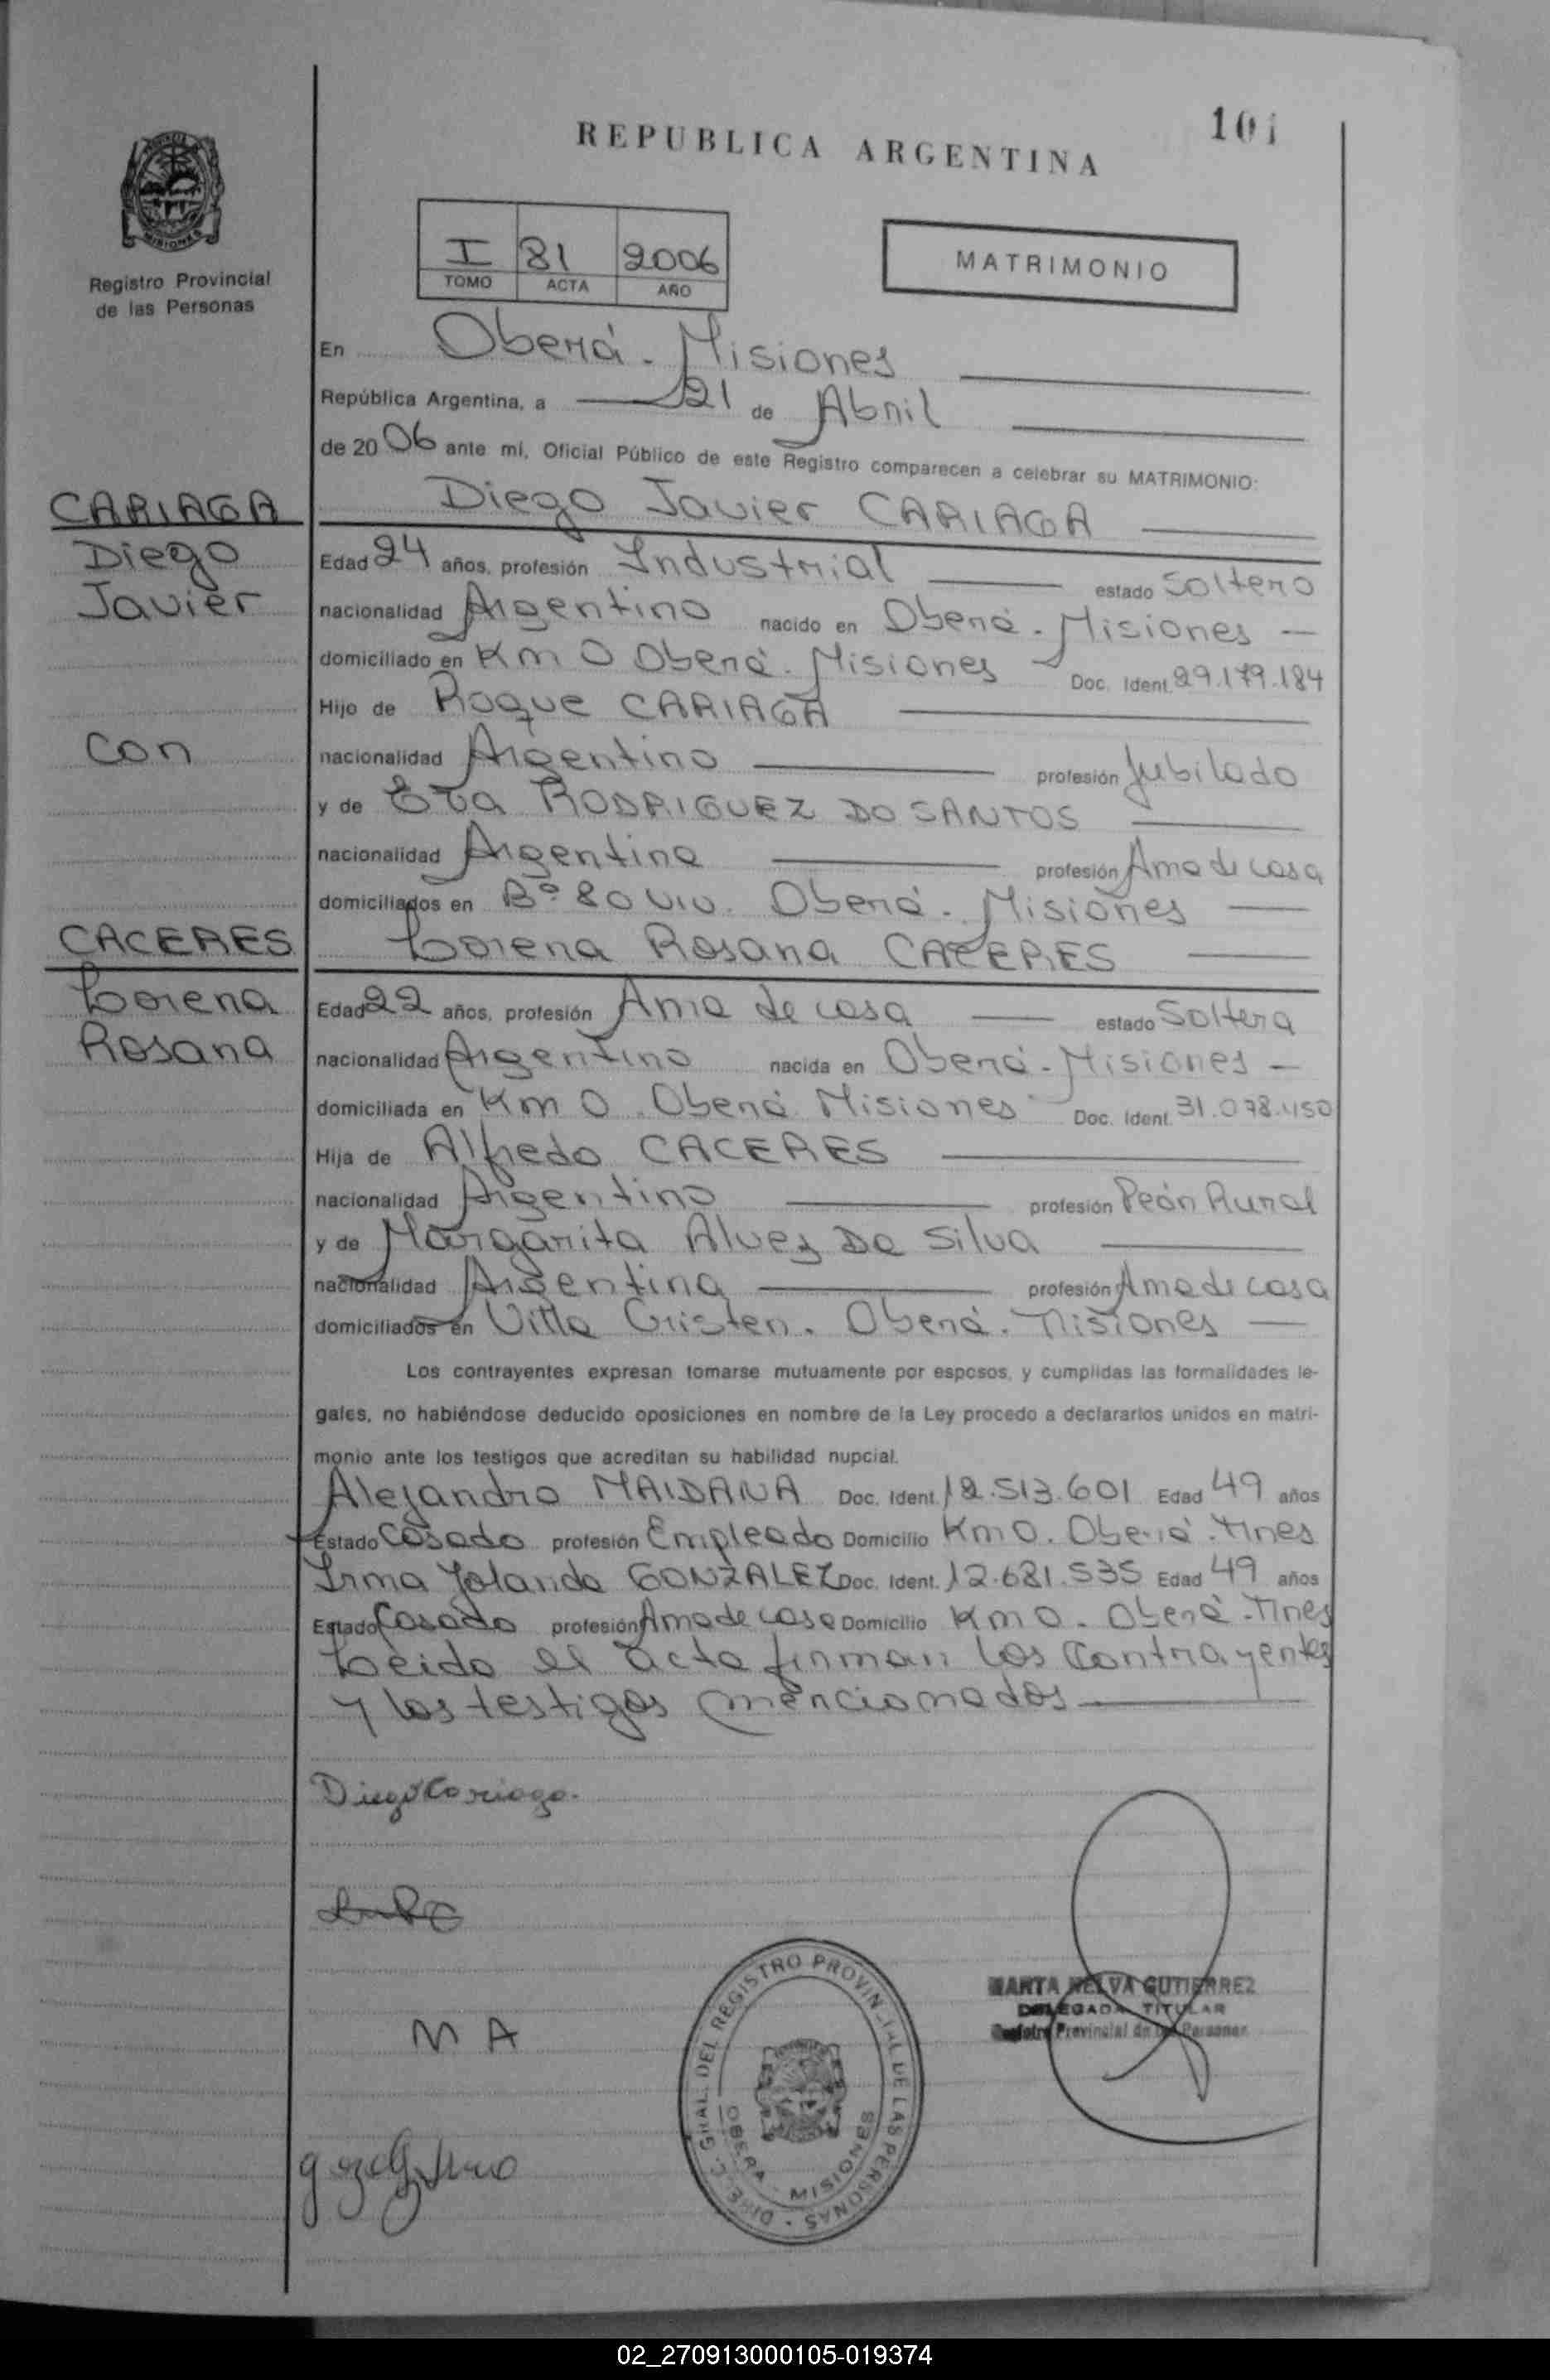 REPUBLICA ARGENTINA
101
Registro Provincial
de las Personas
I 81 2006
TOMO ACTA AÑO
MATRIMONIO
En Oberá - Misiones
República Argentina, a 21 de Abril
de 2006 ante mi, Oficial Público de este Registro comparecen a celebrar su MATRIMONIO:
CARIAGA
Diego
Javier
con
CACERES
Lorena
Rosana
Diego Javier CARIAGA
Edad 24 años, profesión Industrial estado Soltero
nacionalidad Argentino nacido en Oberá - Misiones
domiciliado en Km 0 Oberá - Misiones Doc. Ident. 29.179.184
Hijo de Roque CARIAGA
nacionalidad Argentino profesión Jubilado
y de Eva RODRIGUEZ DO SANTOS
nacionalidad Argentina profesión Ama de casa
domiciliados en Bº 80 Viv. Oberá - Misiones
Lorena Rosana CACERES
Edad 22 años, profesión Ama de casa estado Soltera
nacionalidad Argentina nacida en Oberá - Misiones
domiciliada en Km 0 Oberá Misiones Doc. Ident. 31.078.450
Hija de Alfredo CACERES
nacionalidad Argentino profesión Peón Rural
y de Margarita Alvez Da Silva
nacionalidad Argentina profesión Ama de casa
domiciliados en Villa Cristen. Oberá. Misiones
Los contrayentes expresan tomarse mutuamente por esposos, y cumplidas las formalidades le-
gales, no habiéndose deducido oposiciones en nombre de la Ley procedo a declararlos unidos en matri-
monio ante los testigos que acreditan su habilidad nupcial.
Alejandro MAIDANA Doc. Ident. 12.513.601 Edad 49 años
Estado Casado profesión Empleado Domicilio Km 0. Oberá. Mnes
Irma Yolanda GONZALEZ Doc. Ident. 12.681.535 Edad 49 años
Estado Casada profesión Ama de casa Domicilio Km 0. Oberá - Mnes
Leida el acta firman los Contrayentes
y los testigos mencionados
Diego Cariaga.
M A
MARTA NELVA GUTIERREZ
DELEGADA TITULAR
Registro Provincial de las Personas
DIREC. GRAL. DEL REGISTRO PROVINCIAL DE LAS PERSONAS -
OBERA - MISIONES
02_270913000105-019374